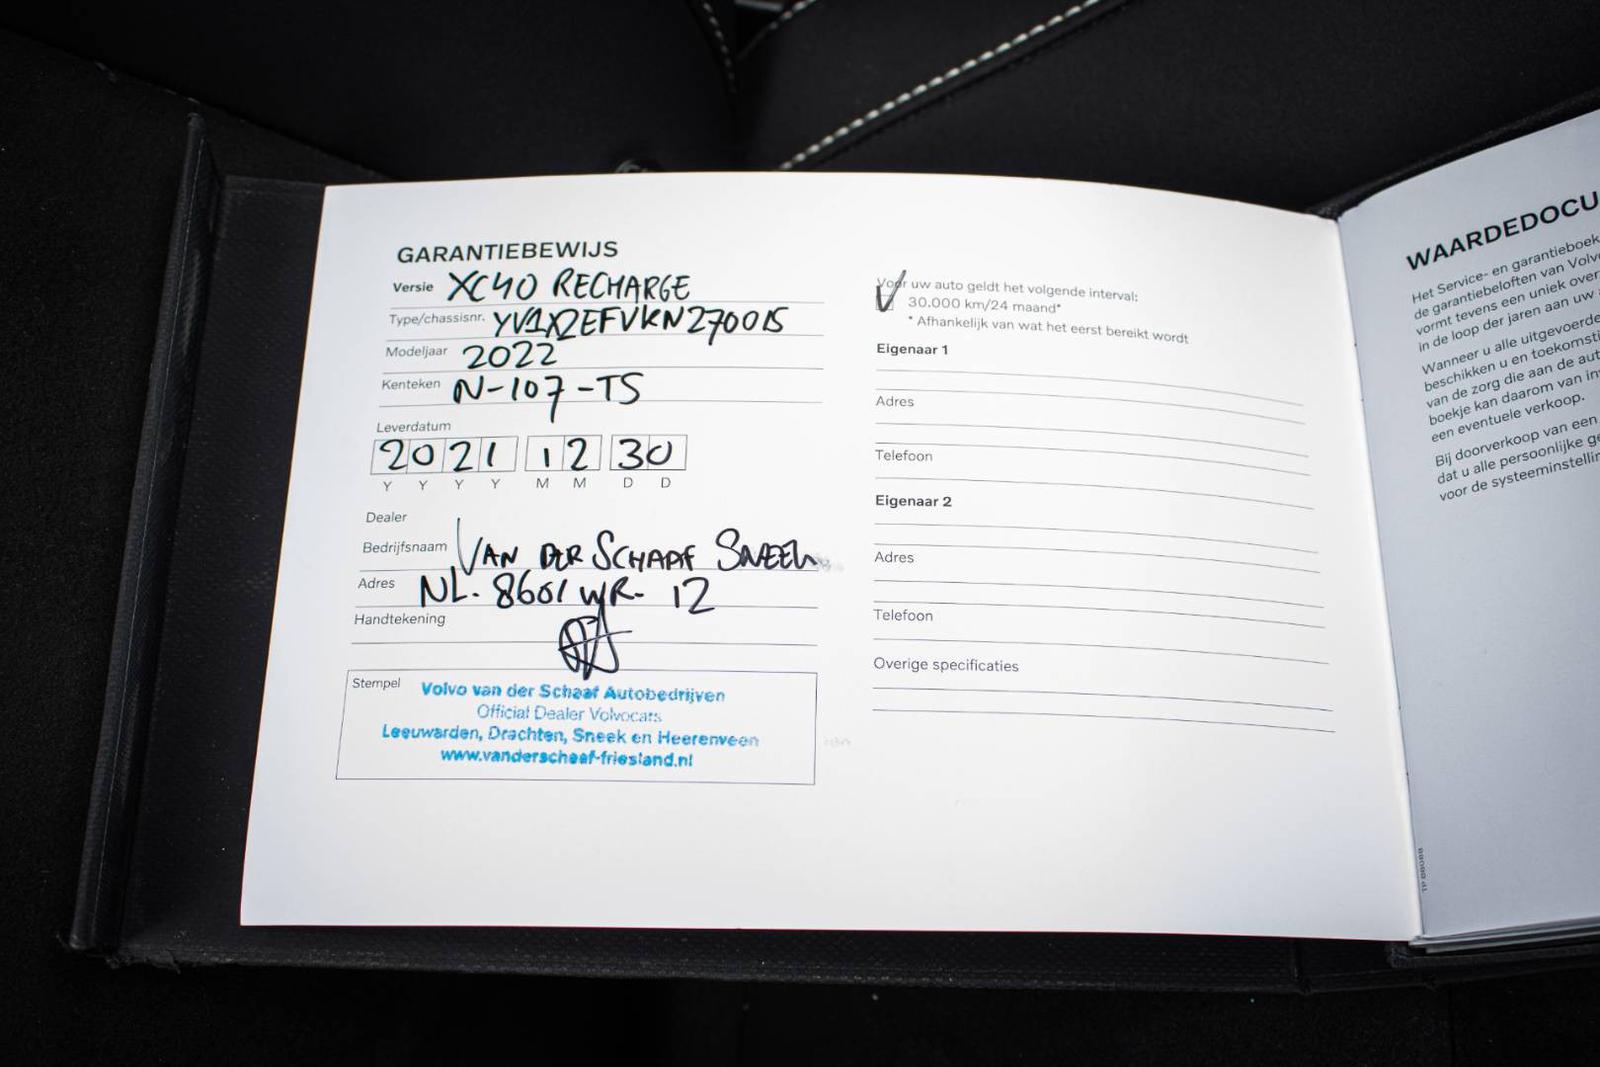 GARANTIEBEWIJS
Versie XC40 RECHARGE
Type/chassisnr. YV1XZEFVKN270015
Modeljaar 2022
Kenteken N-107-TS
Leverdatum
2021 12 30
Y Y Y Y M M D D
Dealer
Bedrijfsnaam VAN DER SCHAAF SNEEK
Adres NL. 8601 WR- 12
Handtekening
Stempel Volvo van der Schaaf Autobedrijven
Official Dealer Volvocars
Leeuwarden, Drachten, Sneek en Heerenveen
www.vanderschaaf-friesland.nl
Voor uw auto geldt het volgende interval:
30.000 km/24 maand*
* Afhankelijk van wat het eerst bereikt wordt
Eigenaar 1
Adres
Telefoon
Eigenaar 2
Adres
Telefoon
Overige specificaties
WAARDEDOCU
Het Service- en garantieboek
de garantiebeloften van Volv
vormt tevens een uniek over
in de loop der jaren aan uw
Wanneer u alle uitgevoerde
beschikken u en toekomsti
van de zorg die aan de aut
boekje kan daarom van in
een eventuele verkoop.
Bij doorverkoop van een
dat u alle persoonlijke ge
voor de systeeminstellin